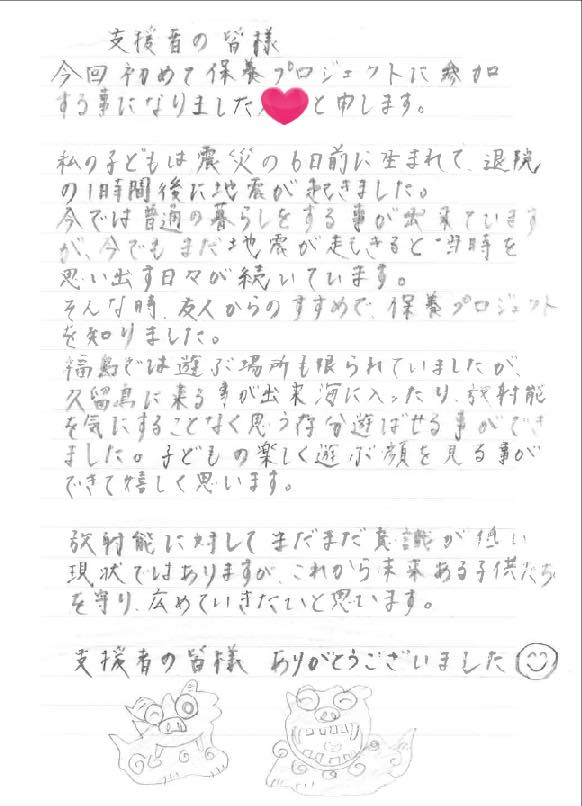 支援者の皆様
今回初めて保養プロジェクトに参加
する事になりました と申します。
私の子どもは震災の6日前に生まれて、退院
の1時間後に地震が起きました。
今では普通の暮らしをする事が出来ています
が、今でもまだ地震が起きると当時を
思い出す日々が続いています。
そんな時、友人からのすすめで、保養プロジェクト
を知りました。
福島では遊ぶ場所も限られていましたが、
久留島に来る事が出来海に入ったり、放射能
を気にすることなく思う存分遊ばせる事ができ
ました。子どもの楽しく遊ぶ顔を見る事が
できて嬉しく思います。
放射能に対してまだまだ意識が低い
現状ではありますが、これから未来ある子供たち
を守り、広めていきたいと思います。
支援者の皆様 ありがとうございました